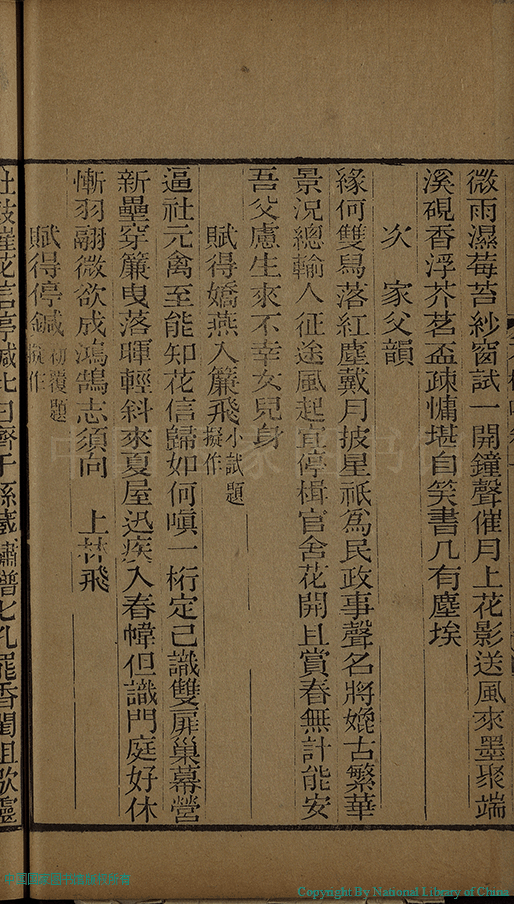 微雨濕莓苔紗窗試一開鐘聲催月上花影送風來墨聚端
溪硯香浮芥茗盃疎慵堪自笑書几有塵埃
次 家父韻
緣何雙舄落紅塵戴月披星祇爲民政事聲名將媲古繁華
景況總輸人征途風起宜停楫官舍花開且賞春無計能安
吾父慮生來不幸女兒身
賦得嬌燕入簾飛小試題擬作
逼社元禽至能知花信歸如何嗔一桁定已識雙扉巢幕營
新壘穿簾曳落暉輕斜來夏屋迅疾入春幃但識門庭好休
慚羽翮微欲成鴻鵠志須向 上林飛
賦得停鍼初覆題擬作
社鼓催花信停鍼此日齊
繡譜
香閨
Copyright By National Library of China